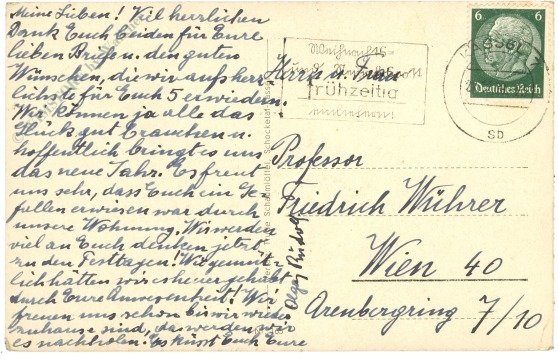 Meine Lieben! Viel herrlichen
Dank Euch beiden für Eure
lieben Briefe u. den guten
Wünschen, die wir aufs herz
lichste für Euch 5 erwiedern.
Wir können ja alle das
Glück gut brauchen u.
hoffentlich bringt es uns
das neue Jahr. Es freut
uns sehr, dass Euch ein Ge-
fallen erwiesen war durch
unsere Wohnung. Wir werden
viel an Euch denken jetzt
zu den Festtagen! Wie gemüt-
lich hätten wir es heuer gehabt
durch Eure Anwesenheit! Wir
freuen uns schon bis wir wieder
zuhause sind, da werden wir
es nachholen. Es küsst Euch Eure
Olga, Rudolf
Weihnachts-
frühzeitig
6 6
Deutsches Reich
Herrn u. Frau
Professor
Friedrich Wührer
Wien 40
Arenbergring 7/10